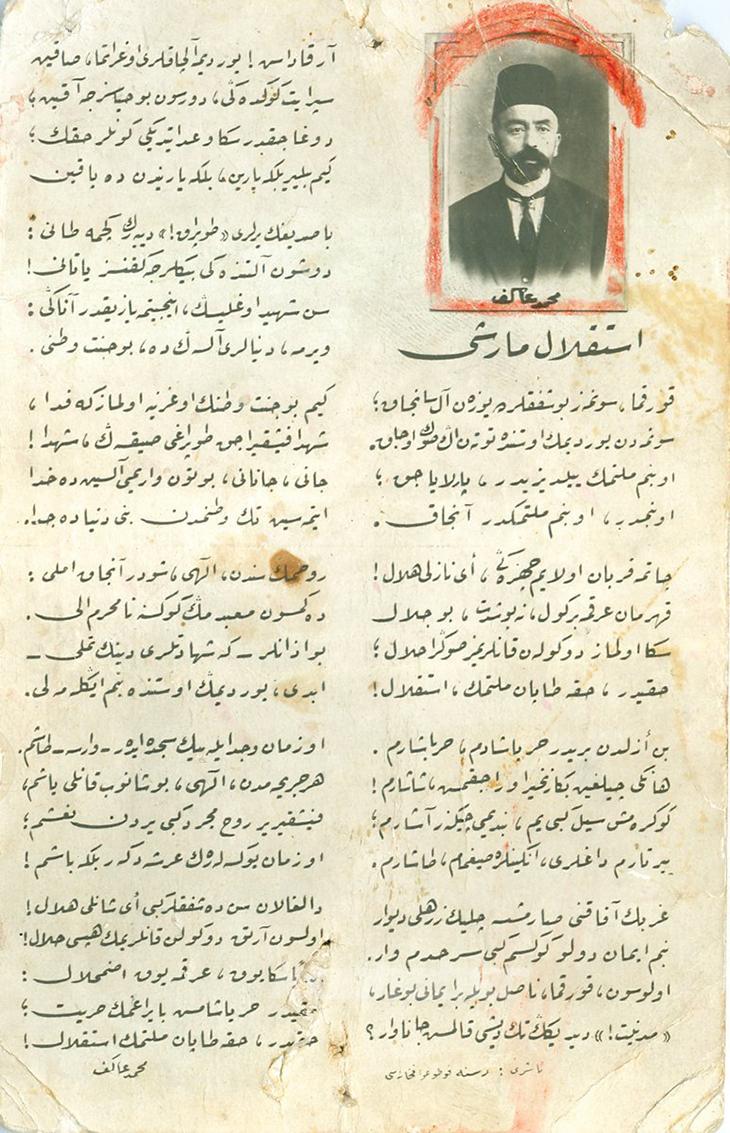 محمد عاكف
استقلال مارشى
قورقما، سونمز بو شفقلرده يوزن آل سانجاق؛
سونمه‌دن يورديمك اوستنده توتن اڭ صوڭ اوجاق.
او بنم ملتمك ييلديزيدر، پارلاياجق؛
او بنمدر، او بنم ملتمكدر آنجاق.
چاتمه قربان اولايم چهره‌ڭى، أى نازلى هلال!
قهرمان عرقمه بر كول، نه بو شدت، بو جلال
سكا اولماز دوكولن قانلريمز صوكرا حلال؛
حقيدر، حقه طاپان ملتمك، استقلال!
بن أزلدن بريدر حر ياشادم، حر ياشارم.
هانكى چيلغين بكا زنجير اوراجقمش، شاشارم!
كوكره‌مش سيل كبى يم، بنديمى چيكنر آشارم؛
ييرتارم داغلرى، انكينلره صيغمام، طاشارم.
غربك آفاقنى صارمشسه چليك زرهلى ديوار
بنم ايمان دولو كوكسم كبى سرحدم وار.
اولوسون، قورقما، ناصل بويله بر ايمانى بوغار،
«مدنيت!» ديديكك تك ديشى قالمش جاناوار؟
ناشرى: رسنه فوطوغرافخانه‌سى
آرقاداش! يورديمه آلچاقلرى اوغراتما، صاقين
سپر ايت كوكده‌كى، دورسون بو حياسزجه آقين؛
دوغاجقدر سكا وعد ايتديكى كونلر حقك؛
كيم بيلير بلكه يارين، بلكه ياريندن ده ياقين
باصديغك يرلرى «طوپراق!» دييه‌رك كچمه طانى:
دوشون آلتنده‌كى بيكلرجه كفنسز ياتانى!
سن شهيد اوغليسڭ، اينجيتمه يازيقدر آتاكى:
ويرمه، دنيالرى آلسه‌ڭ ده، بو جنت وطنى.
كيم بو جنت وطنك اوغرينه اولماز كه فدا،
شهدا فيشقيراجق طوپراغى صيقسه‌ڭ، شهدا!
جانى، جانانى، بوتون واريمى آلسين ده خدا
ايتمه‌سين تك وطنمدن بنى دنياده جدا.
روحمك سندن، الهى، شودر آنجاق املى:
دكمسون معبدمك كوكسنه نامحرم الى.
بو اذانلر ـ كه شهادتلرى دينك تملى ـ
ابدى، يورديمك اوستنده بنم ايكله‌مه‌لى.
او زمان وجد ايله بيك سجده ايدر ـ وارسه ـ طاشم.
هر جريحه‌مدن، الهى، بوشانوب قانلى ياشم،
فيشقيرير روح مجرد كبى يردن نعشم؛
او زمان يوكسه‌له‌رك عرشه دكر بلكه باشم!
دالغالان سن ده شفقلر كبى أى شانلى هلال!
اولسون آرتق دوكولن قانلريمك هپسى حلال!
سكا يوق، عرقمه يوق اضمحلال:
حقيدر حر ياشامش بايراغمك حريت؛
حقيدر، حقه طاپان ملتمك استقلال!
محمد عاكف